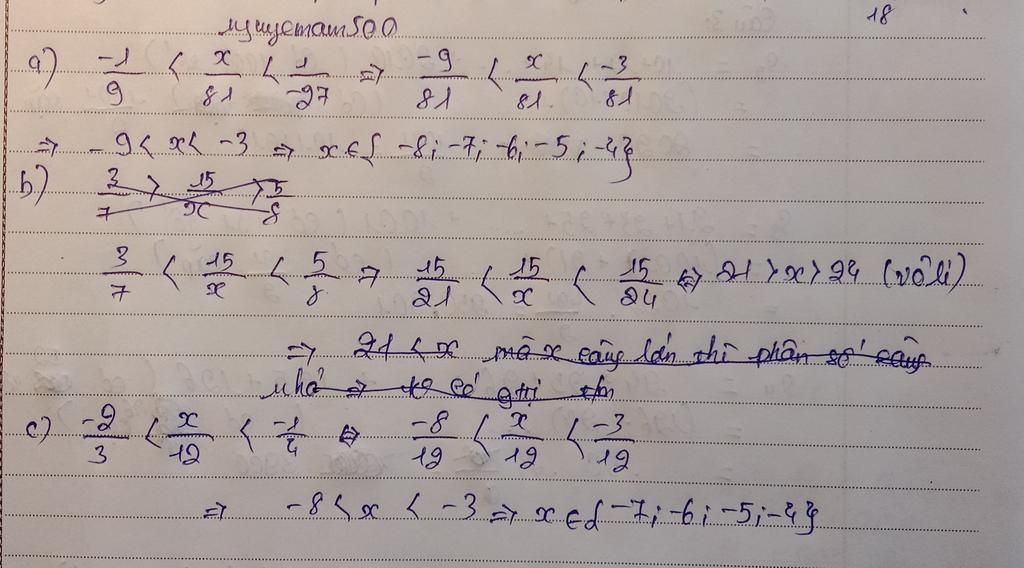 18
nguyetam500
a) -1/9 < x/81 < 1/-27 => -9/81 < x/81 < -3/81
=> -9 < x < -3 => x∈{ -8; -7; -6; -5; -4}
b) 3/7 > 15/x > 5/8
3/7 < 15/x < 5/8 => 15/21 < 15/x < 15/24 <=> 21 > x > 24 (vô lí)
=> 21 < x mà x càng lớn thì phân số càng
nhỏ => có gtrị
c) -2/3 < x/12 < -1/4 <=> -8/12 < x/12 < -3/12
=> -8 < x < -3 => x∈{ -7; -6; -5; -4}